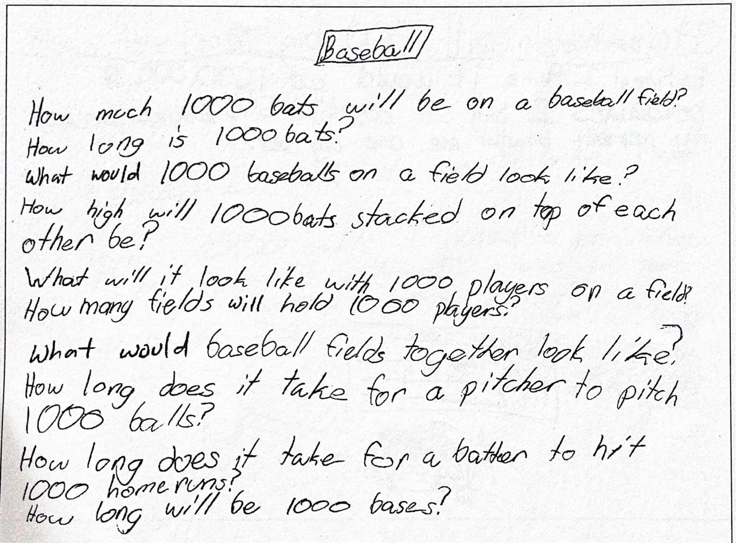 Baseball
How much 1000 bats will be on a baseball field?
How long is 1000 bats?
What would 1000 baseballs on a field look like?
How high will 1000 bats stacked on top of each
other be?
What will it look like with 1000 players on a field?
How many fields will hold 1000 players?
What would baseball fields together look like?
How long does it take for a pitcher to pitch
1000 balls?
How long does it take for a batter to hit
1000 homeruns?
How long will be 1000 bases?